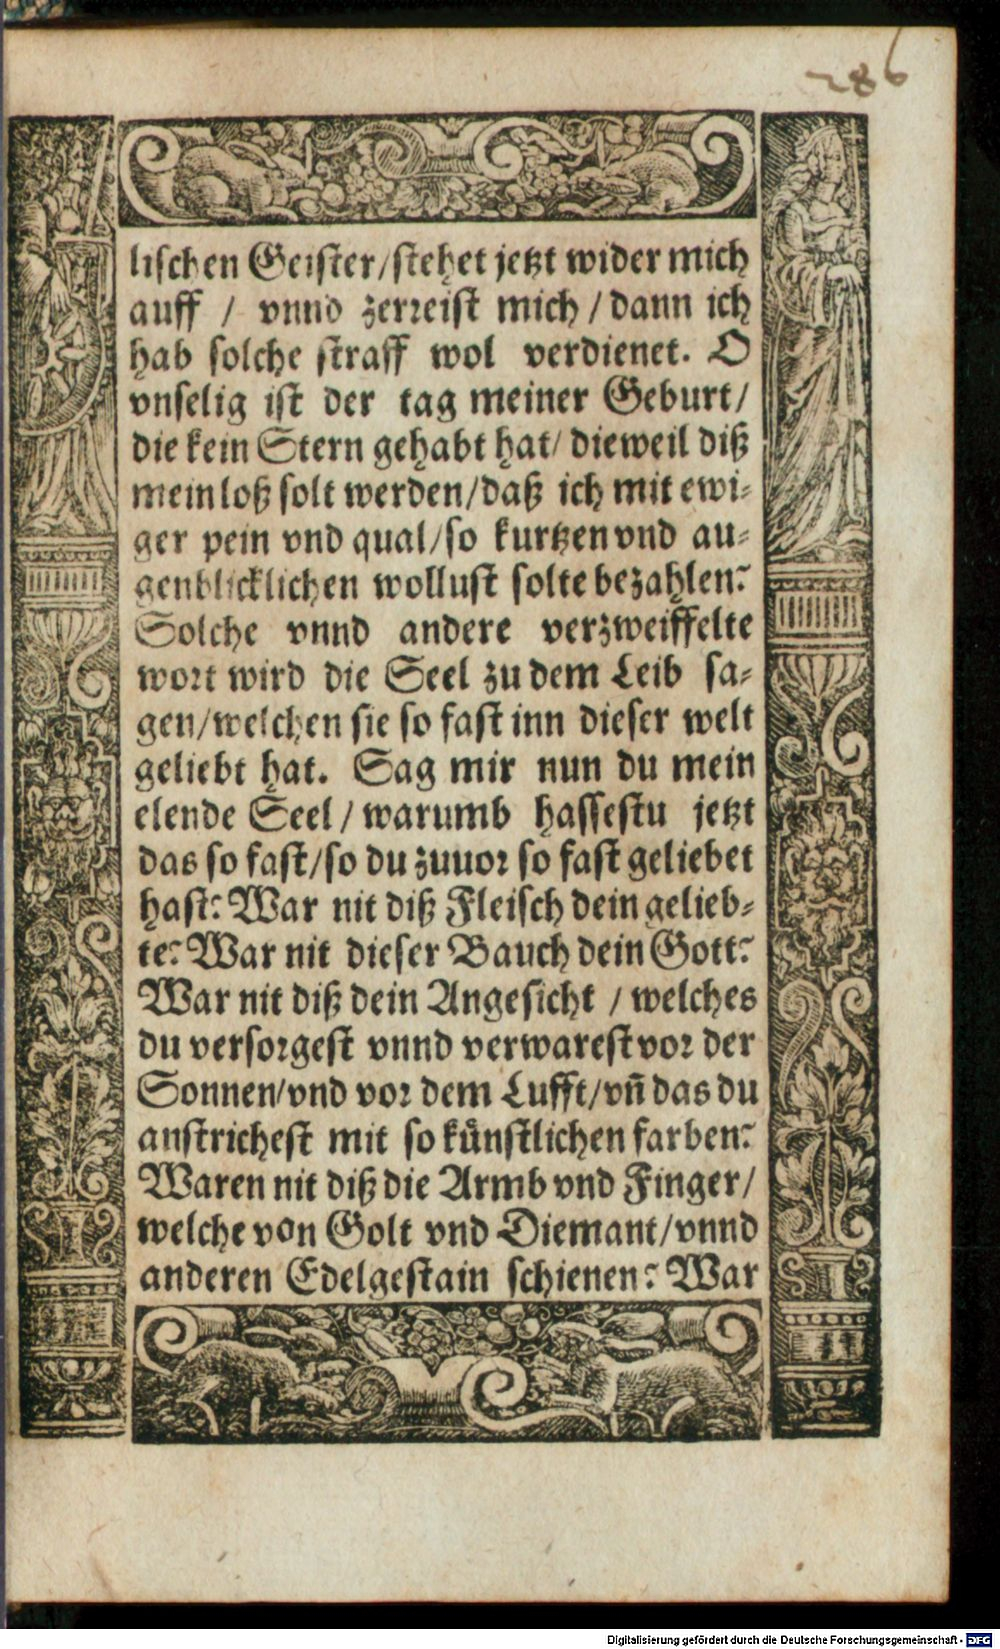 286
lischen Geister/stehet jetzt wider mich
auff / vnnd zerreist mich / dann ich
hab solche straff wol verdienet. O
vnselig ist der tag meiner Geburt/
die kein Stern gehabt hat/ dieweil diß
mein loß solt werden/daß ich mit ewi-
ger pein vnd qual/so kurtzen vnd au-
genblicklichen wollust solte bezahlen?
Solche vnnd andere verzweiffelte
wort wird die Seel zu dem Leib sa-
gen/welchen sie so fast inn dieser welt
geliebt hat. Sag mir nun du mein
elende Seel / warumb hassestu jetzt
das so fast/so du zuuor so fast geliebet
hast? War nit diß Fleisch dein gelieb-
te? War nit dieser Bauch dein Gott?
War nit diß dein Angesicht / welches
du versorgest vnnd verwarest vor der
Sonnen/vnd vor dem Lufft/vn̄ das du
anstrichest mit so kuͤnstlichen farben?
Waren nit diß die Armb vnd Finger/
welche von Golt vnd Diemant/vnnd
anderen Edelgestain schienen? War
Digitalisierung gefördert durch die Deutsche Forschungsgemeinschaft - DFG